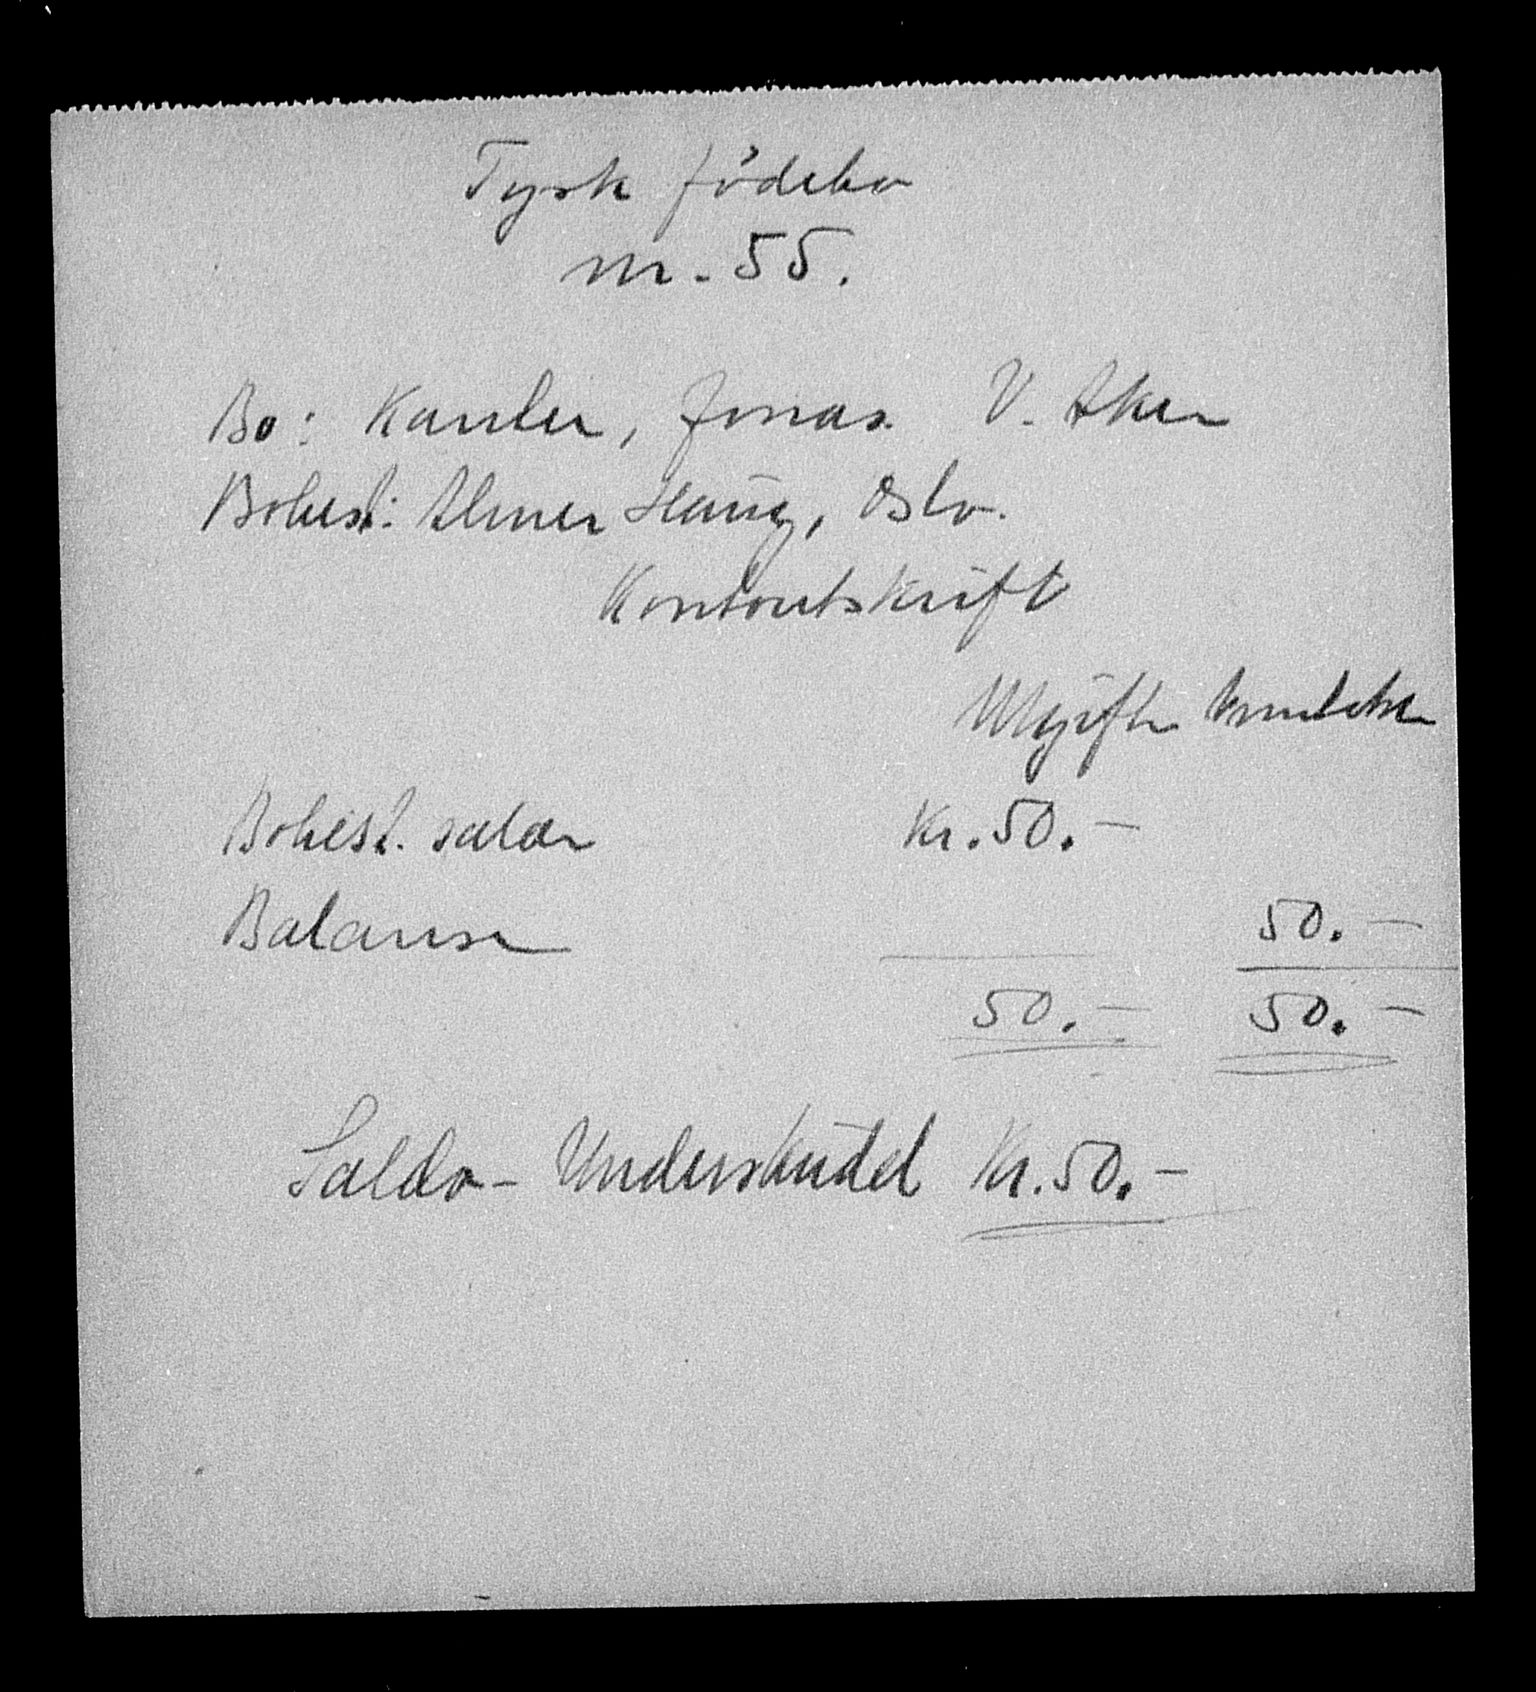 Tysk jødebo
nr. 55.
Bo: Kanter, Jonas. V. Aker
Bobest: Almer Haug, Oslo.
Kontoutskrift
Utgifter Inntekter
Bobest. salær Kr. 50.-
Balanse 50.-
50.- 50.-
Saldo - Underskudd Kr. 50.-